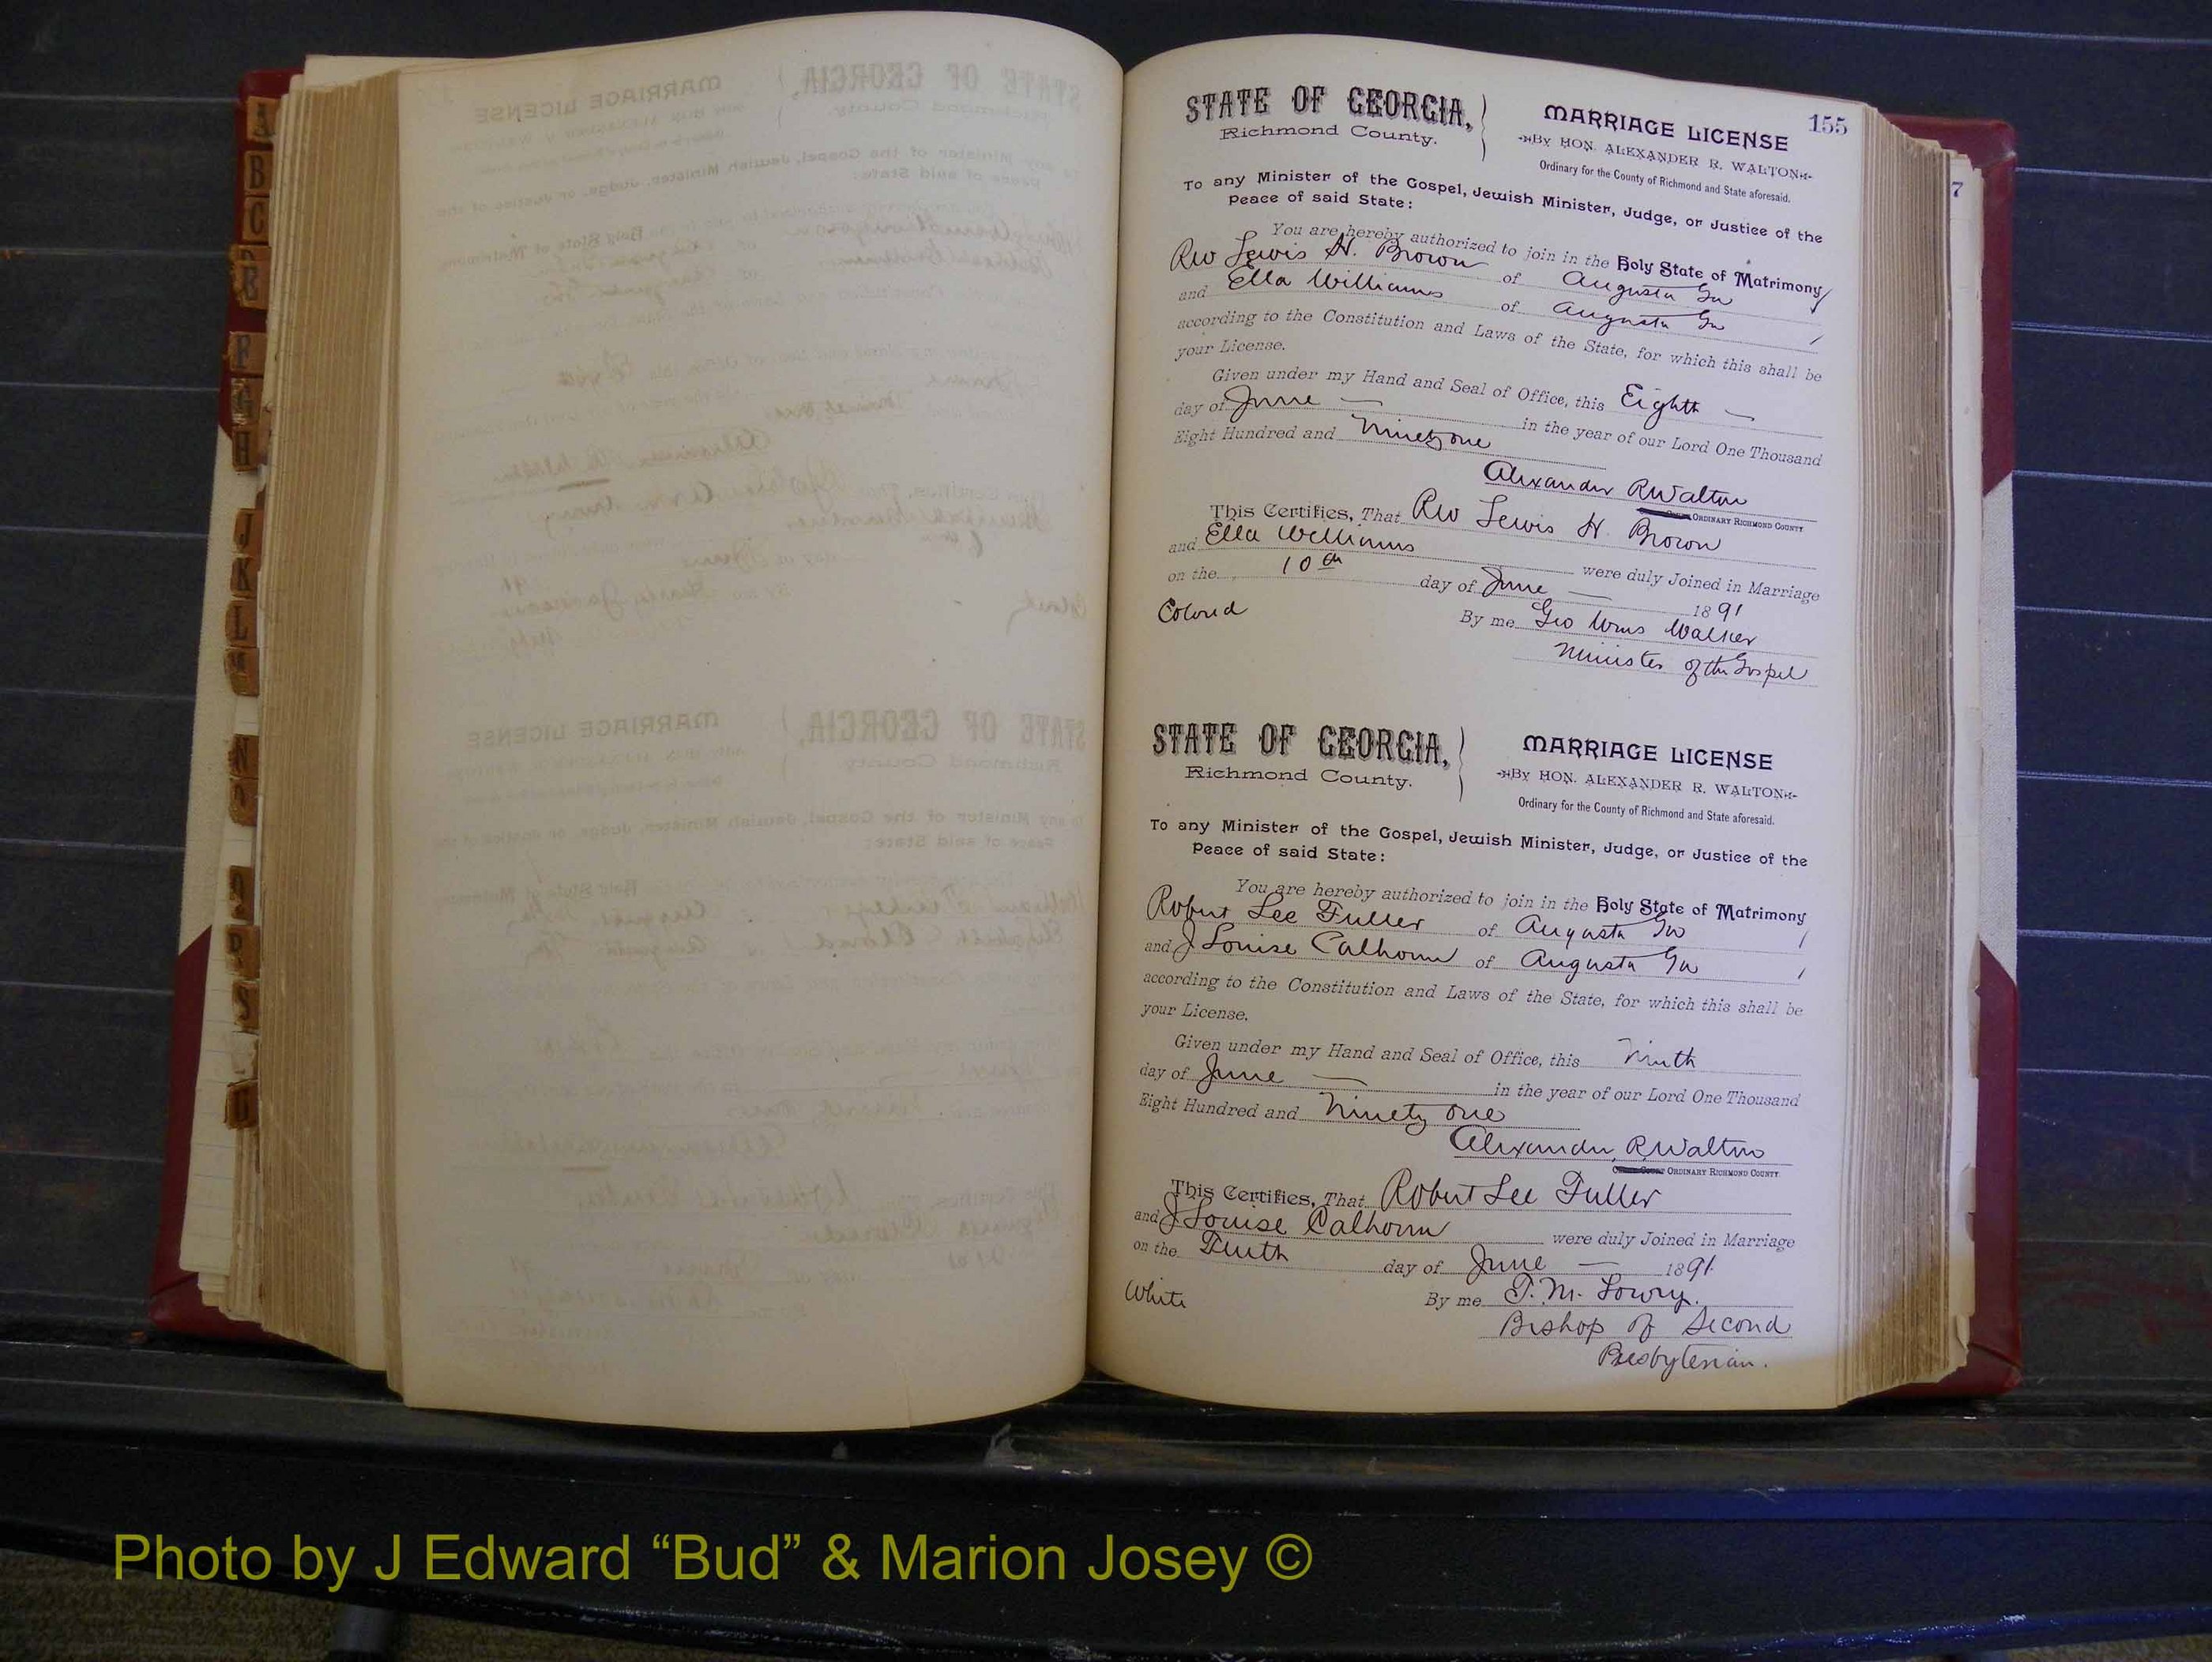 A
B
C
F
H
J
K
L
M
N
R
S
155
7
STATE OF GEORGIA,
Richmond County.
MARRIAGE LICENSE
By HON. ALEXANDER R. WALTON
Ordinary for the County of Richmond and State aforesaid.
To any Minister of the Gospel, Jewish Minister, Judge, or Justice of the
Peace of said State:
You are hereby authorized to join in the Holy State of Matrimony
Rev Lewis H. Brown of Augusta Ga
and Ella Williams of Augusta Ga
according to the Constitution and Laws of the State, for which this shall be
your License.
Given under my Hand and Seal of Office, this Eighth
day of June in the year of our Lord One Thousand
Eight Hundred and Ninety one
Alexander R Walton
ORDINARY RICHMOND COUNTY
This Certifies, That Rev Lewis H. Brown
and Ella Williams were duly Joined in Marriage
on the 10th day of June 1891
Colored
By me Geo Wms Walker
Minister of the Gospel
STATE OF GEORGIA,
Richmond County.
MARRIAGE LICENSE
By HON. ALEXANDER R. WALTON
Ordinary for the County of Richmond and State aforesaid.
To any Minister of the Gospel, Jewish Minister, Judge, or Justice of the
Peace of said State:
You are hereby authorized to join in the Holy State of Matrimony
Robert Lee Fuller of Augusta Ga
and J Louise Calhoun of Augusta Ga
according to the Constitution and Laws of the State, for which this shall be
your License.
Given under my Hand and Seal of Office, this Ninth
day of June in the year of our Lord One Thousand
Eight Hundred and Ninety one
Alexander R Walton
ORDINARY RICHMOND COUNTY
This Certifies, That Robert Lee Fuller
and J Louise Calhoun were duly Joined in Marriage
on the Tenth day of June 1891
White
By me T. M. Lowry.
Bishop of Second
Presbyterian.
Photo by J Edward “Bud” & Marion Josey ©